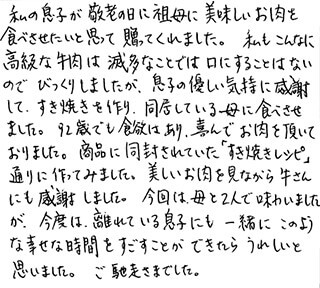 私の息子が敬老の日に祖母に美味しいお肉を
食べさせたいと思って贈ってくれました。 私もこんなに
高級な牛肉は滅多なことでは口にすることはない
のでびっくりしましたが、息子の優しい気持に感謝
して、すき焼きを作り、同居している母に食べさせ
ました。92歳でも食欲はあり、喜んでお肉を頂いて
おりました。商品に同封されていた「すき焼きレシピ」
通りに作ってみました。美しいお肉を見ながら牛さん
にも感謝しました。 今回は、母と2人で味わいました
が、今度は、離れている息子にも一緒にこのよう
な幸せな時間をすごすことができたらうれしいと
思いました。 ご馳走さまでした。